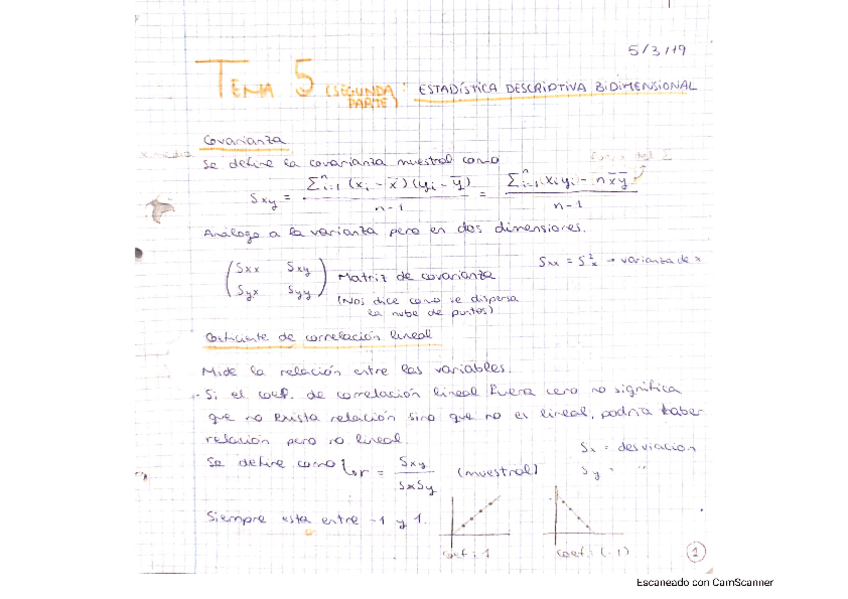 5/3/19
TEMA 5 (SEGUNDA PARTE): ESTADÍSTICA DESCRIPTIVA BIDIMENSIONAL
Covarianza
Se define la covarianza muestral como
Sxy = Σⁿi=1 (xi - x̄)(yi - ȳ) / n-1 = Σⁿi=1 xi yi - n x̄ȳ / n-1
Análogo a la varianza pero en dos dimensiones.
(Sxx Sxy
Syx Syy) Matriz de covarianza
Sxx = S²x → varianza de x
(Nos dice como se dispersa
la nube de puntos)
Coeficiente de correlación lineal
Mide la relación entre las variables.
Si el coef. de correlación lineal fuera cero no significa
que no exista relación sino que no es lineal, podría haber
relación pero no lineal.
Sx = desviacion
Sy = "
Se define como r = Sxy / SxSy (muestral)
Siempre esta entre -1 y 1.
coef: 1
coef: (-1)
1
Escaneado con CamScanner